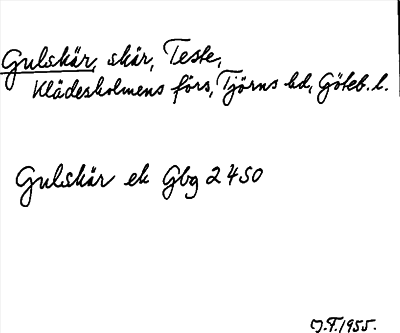 Gulskär, skär, Teste,
Klädesholmens förs, Tjörns hd, Göteb. l.
Gulskär ek Gbg 2450
J.F. 1955.